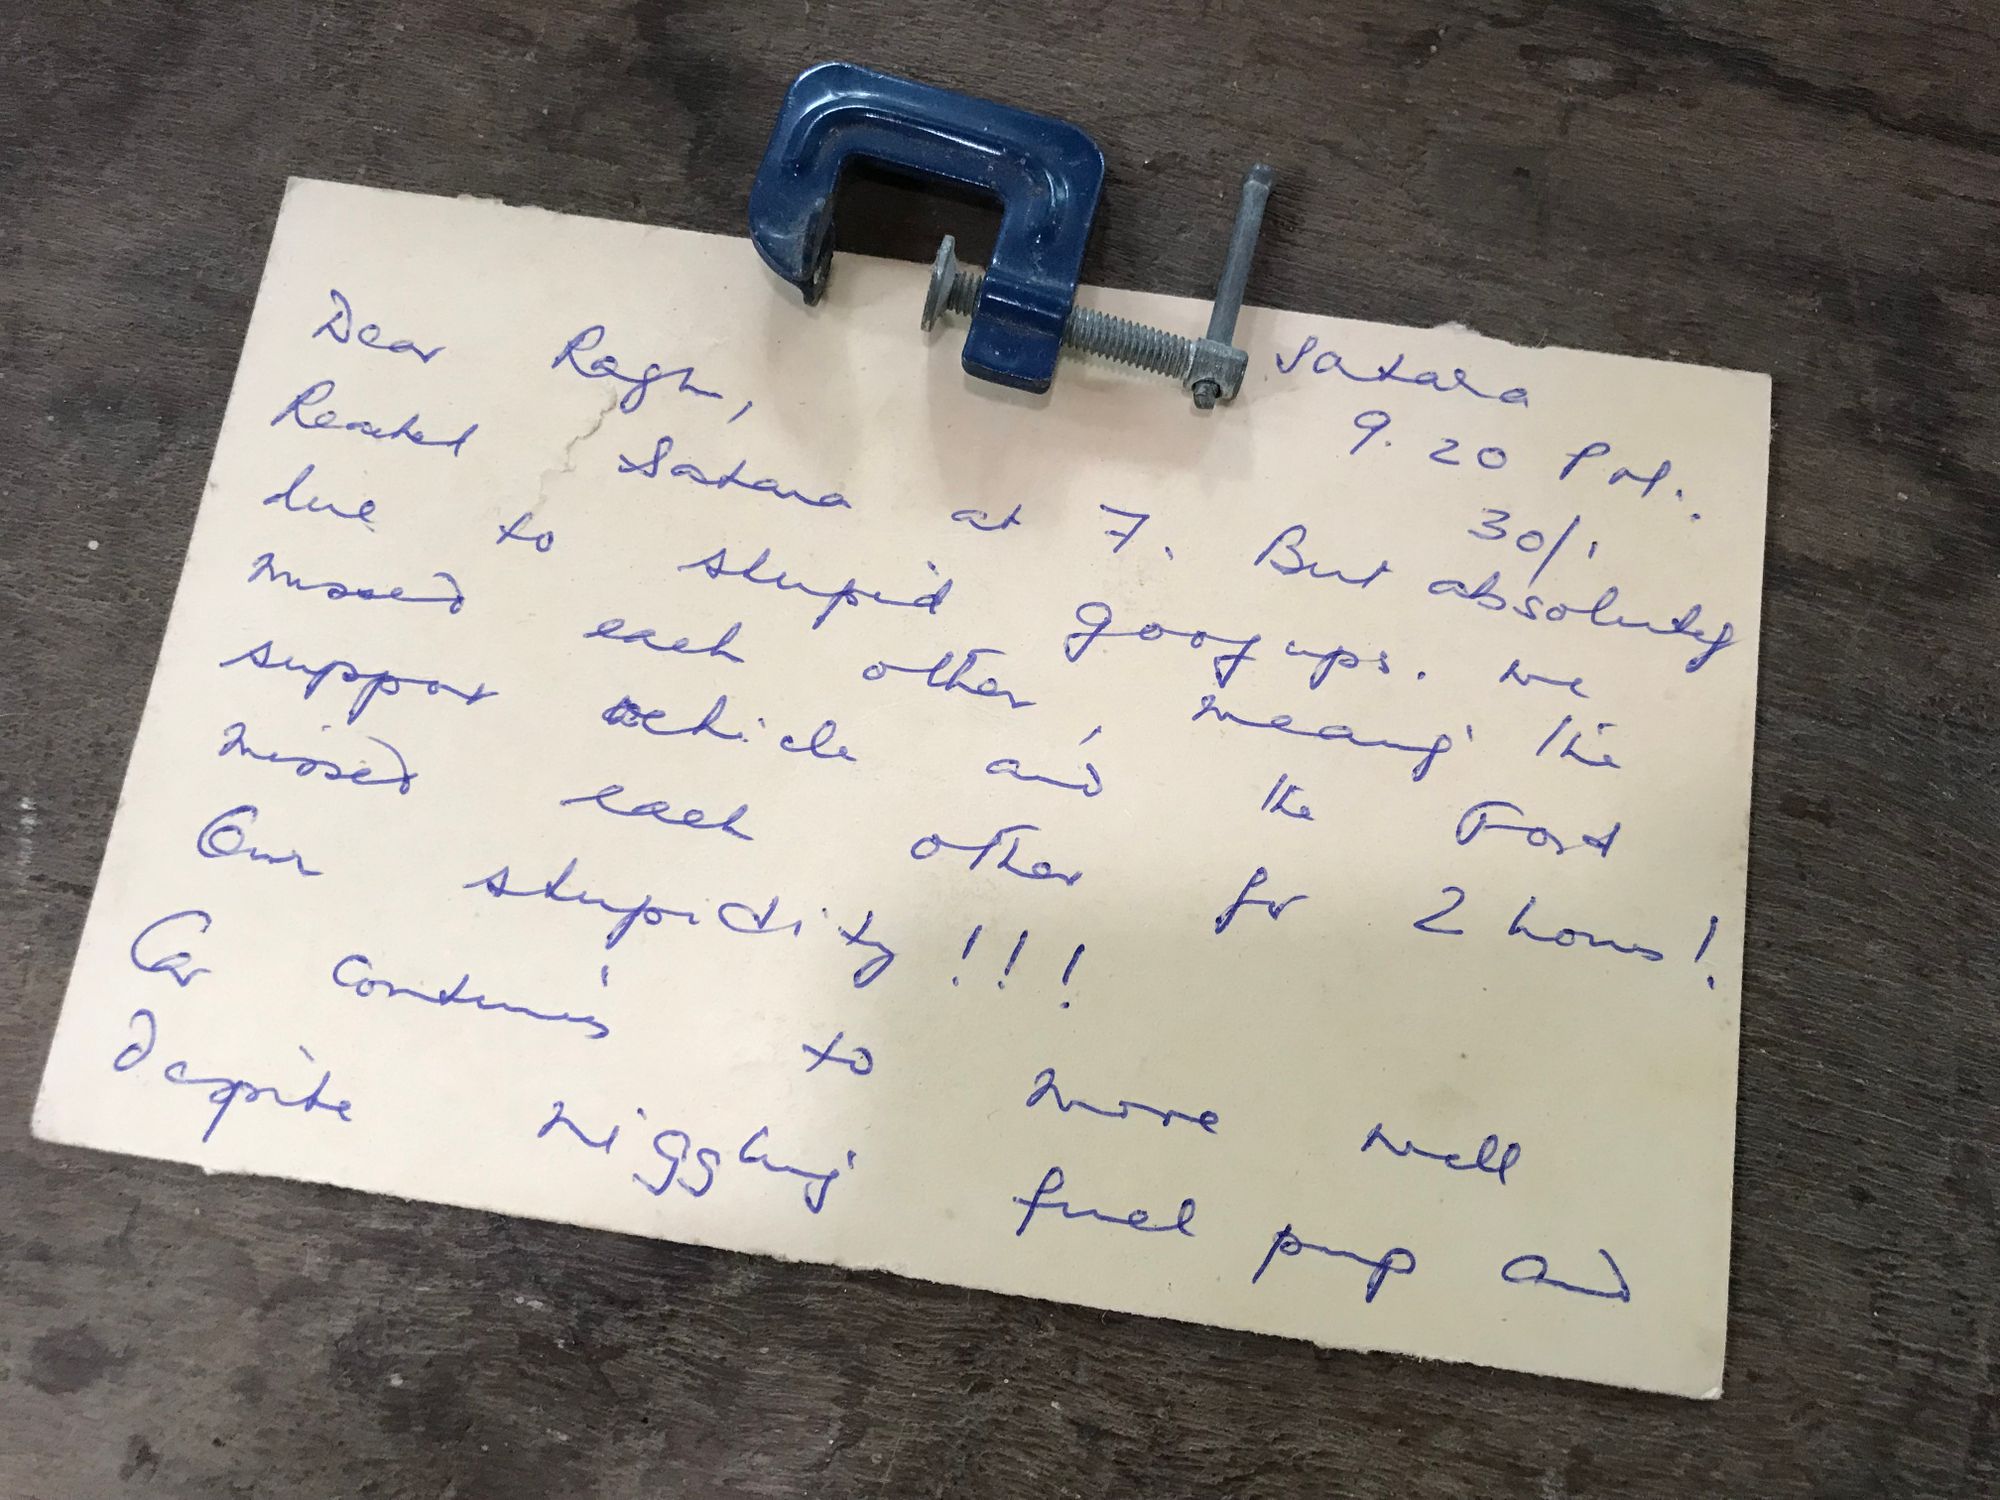 Satara
9.20 PM.
30/1
Dear Raghu,
Reached Satara at 7. But absolutely
due to stupid goof ups. We
missed each other, meang the
support vehicle and the Ford
missed each other for 2 hours!
Our stupidity!!!
Car continues to move well
despite niggling fuel pup and